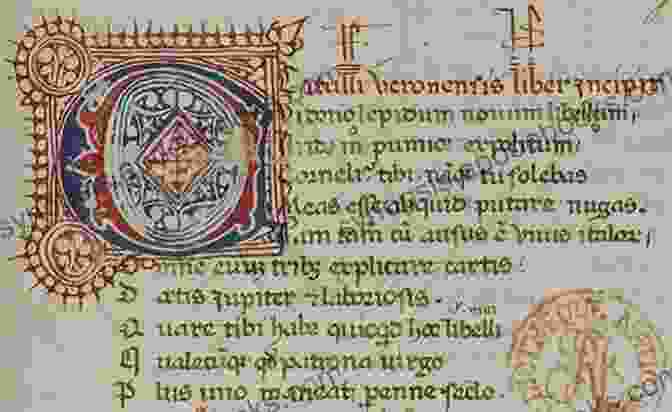 Catulli Veronensis liber incipit
ui dono lepidum nouum libellum
rido modo pumice expolitum
Corneli tibi naqȝ tu solebas
Meas esse aliquid putare nugas.
Iam tum cū ausus ē unus italoꝝ
Omne euuȝ tribȝ explicare cartis
D octis Jupiter & laboriosis.
Q uare tibi habe quicqd hoc libelli
Q ualecūqȝ qd patrona uirgo
P lus uno maneat perenne seclo.